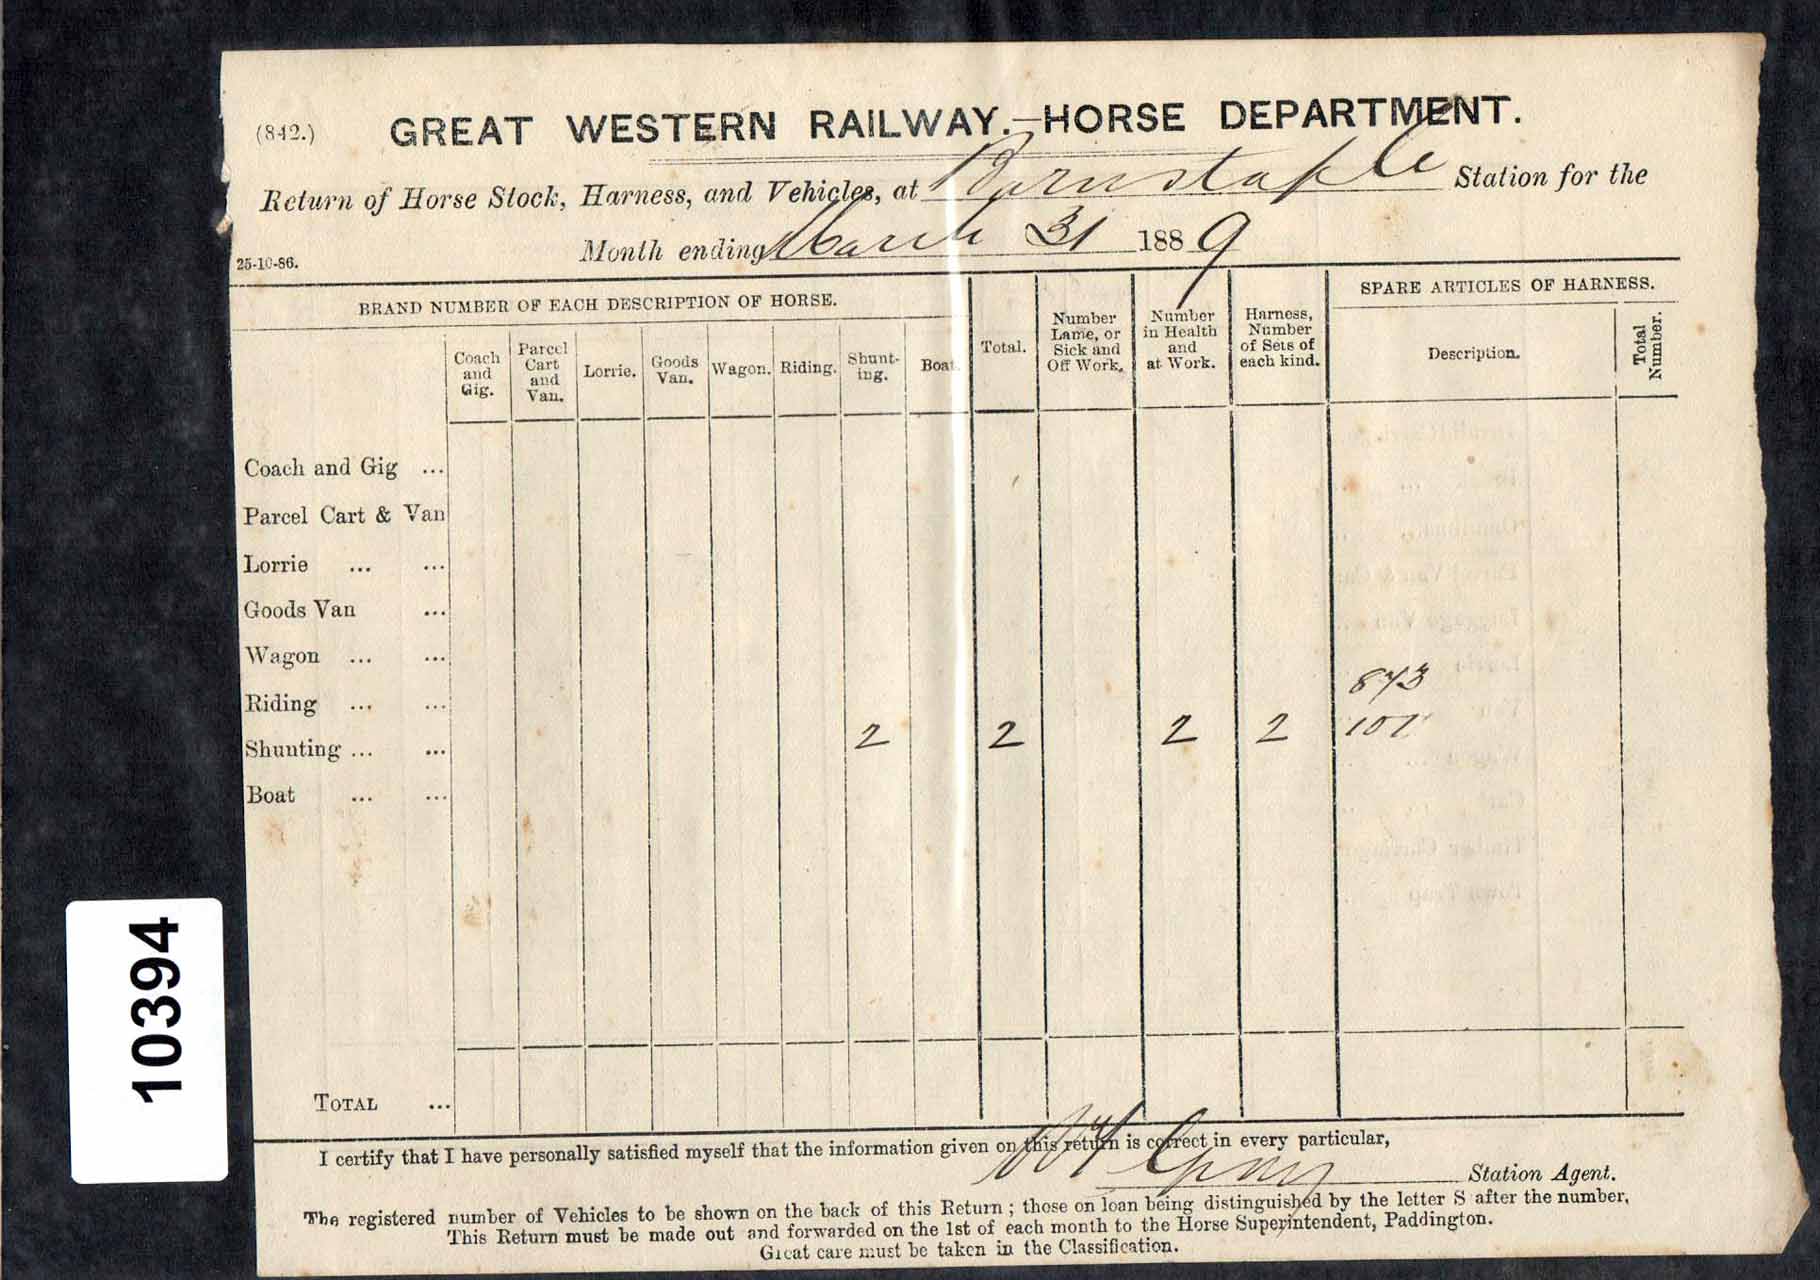 (842.) GREAT WESTERN RAILWAY.—HORSE DEPARTMENT.
Return of Horse Stock, Harness, and Vehicles, at Barnstaple Station for the
Month ending March 31 1889
25-10-86.
BRAND NUMBER OF EACH DESCRIPTION OF HORSE.
Coach and Gig.
Parcel Cart and Van.
Lorrie.
Goods Van.
Wagon.
Riding.
Shunting.
Boat.
Total.
Number Lame, or Sick and Off Work.
Number in Health and at Work.
Harness, Number of Sets of each kind.
SPARE ARTICLES OF HARNESS.
Description.
Total Number.
Coach and Gig ...
Parcel Cart & Van
Lorrie ... ...
Goods Van ...
Wagon ... ...
873
Riding ... ...
Shunting ... ... 2 2 2 2 107
Boat ... ...
TOTAL ...
I certify that I have personally satisfied myself that the information given on this return is correct in every particular,
Station Agent.
The registered number of Vehicles to be shown on the back of this Return; those on loan being distinguished by the letter S after the number.
This Return must be made out and forwarded on the 1st of each month to the Horse Superintendent, Paddington.
Great care must be taken in the Classification.
10394